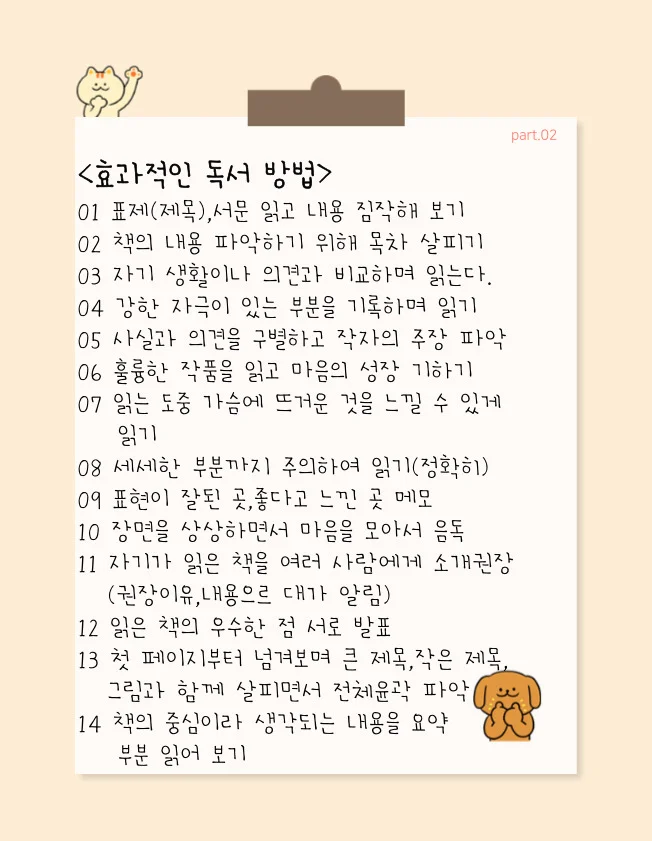 part.02
<효과적인 독서 방법>
01 표제(제목),서문 읽고 내용 짐작해 보기
02 책의 내용 파악하기 위해 목차 살피기
03 자기 생활이나 의견과 비교하며 읽는다.
04 강한 자극이 있는 부분을 기록하며 읽기
05 사실과 의견을 구별하고 작자의 주장 파악
06 훌륭한 작품을 읽고 마음의 성장 기하기
07 읽는 도중 가슴에 뜨거운 것을 느낄 수 있게
읽기
08 세세한 부분까지 주의하여 읽기(정확히)
09 표현이 잘된 곳,좋다고 느낀 곳 메모
10 장면을 상상하면서 마음을 모아서 음독
11 자기가 읽은 책을 여러 사람에게 소개권장
(권장이유,내용으르 대가 알림)
12 읽은 책의 우수한 점 서로 발표
13 첫 페이지부터 넘겨보며 큰 제목,작은 제목,
그림과 함께 살피면서 전체윤곽 파악
14 책의 중심이라 생각되는 내용을 요약
부분 읽어 보기